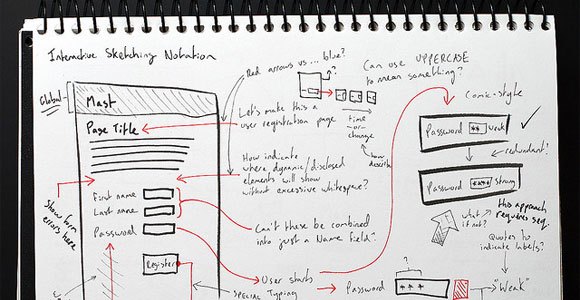 Interactive Sketching Notation
Global
Mast
Page Title
First name
Last name
Password
Register
Show form
errors here
Red arrows vs ... blue?
Let's make this a
user registration page
How indicate
where dynamic/disclosed
elements will show
without excessive whitespace?
Can't these be combined
into just a Name Field"
User starts
SPECIAL TYPING
?
time
or
change
how
describe
Can use UPPERCASE
to mean something?
Comic-style
Password ** weak
redundant!
Password **** strong
what
if not?
this approach
requires seq.
Quotes to
indicate labels?
Password
?
* * *
"Weak"